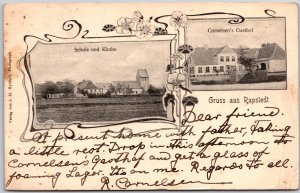 Schule und Kirche
Cornelsen's Gasthof
Gruss aus Rapstedt
Dear friend.
At present home with father, taking
a little rest. Drop in this afternoon to
Cornelsen's Gasthof and get a glass of
foaming Lager, its on me. Regards to all.
R. Cornelsen